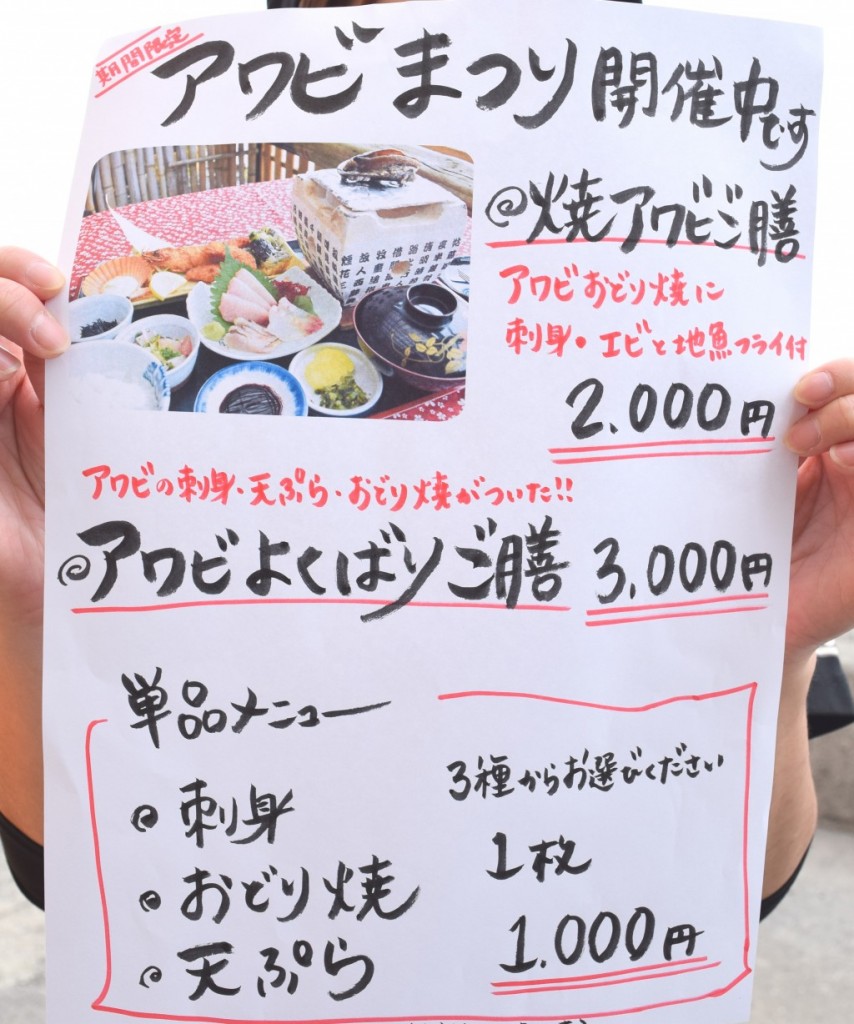 期間限定
アワビまつり開催中です
焼アワビご膳
アワビおどり焼に
刺身・エビと地魚フライ付
2.000円
アワビの刺身・天ぷら・おどり焼がついた!!
アワビよくばりご膳 3,000円
単品メニュー
3種からお選びください
刺身
おどり焼
天ぷら
1枚
1.000円